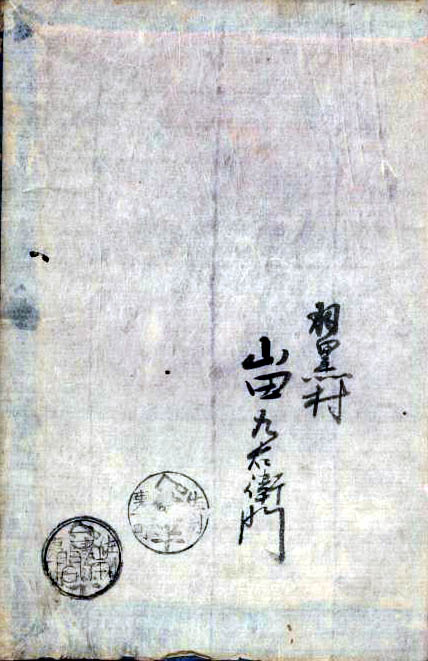 羽黒村
山田九右衛門